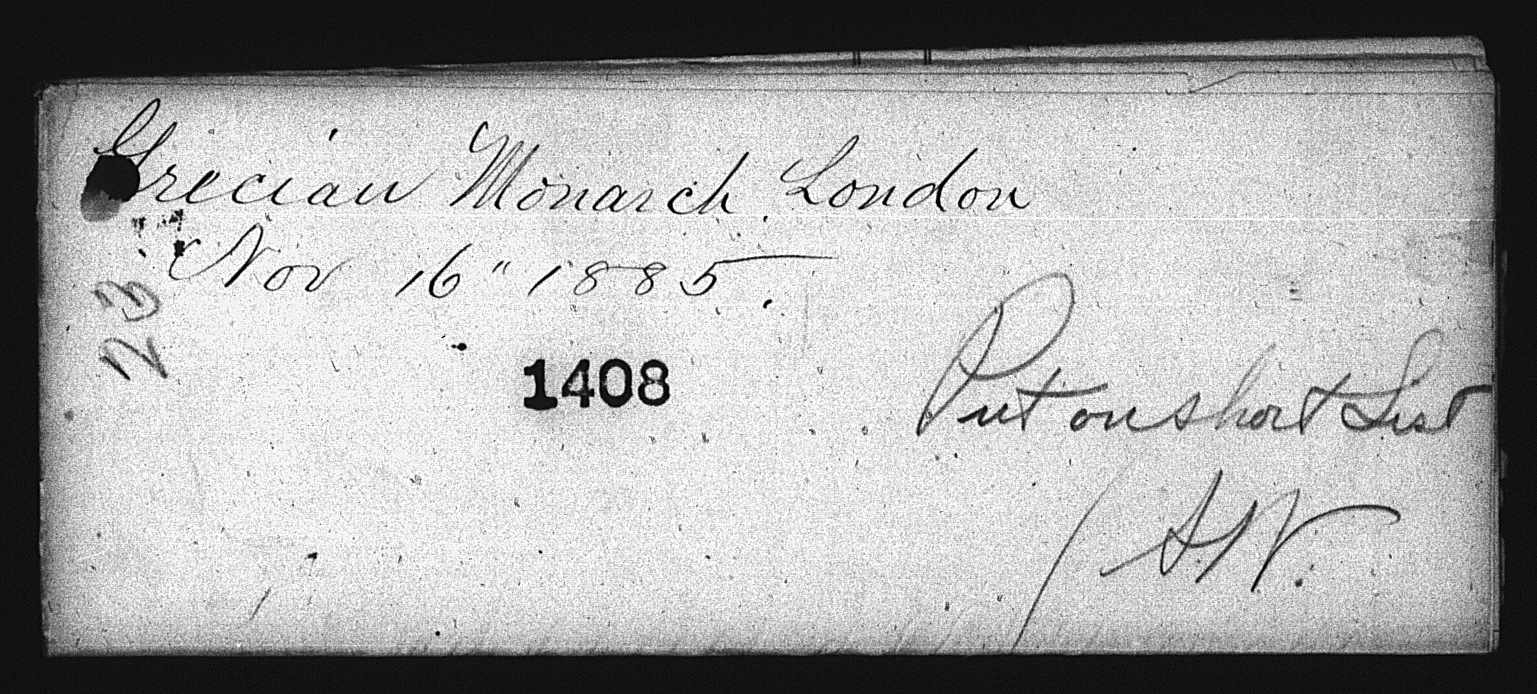 Grecian Monarch. London
Nov 16" 1885.
23
1408
Put on short List
S.W.